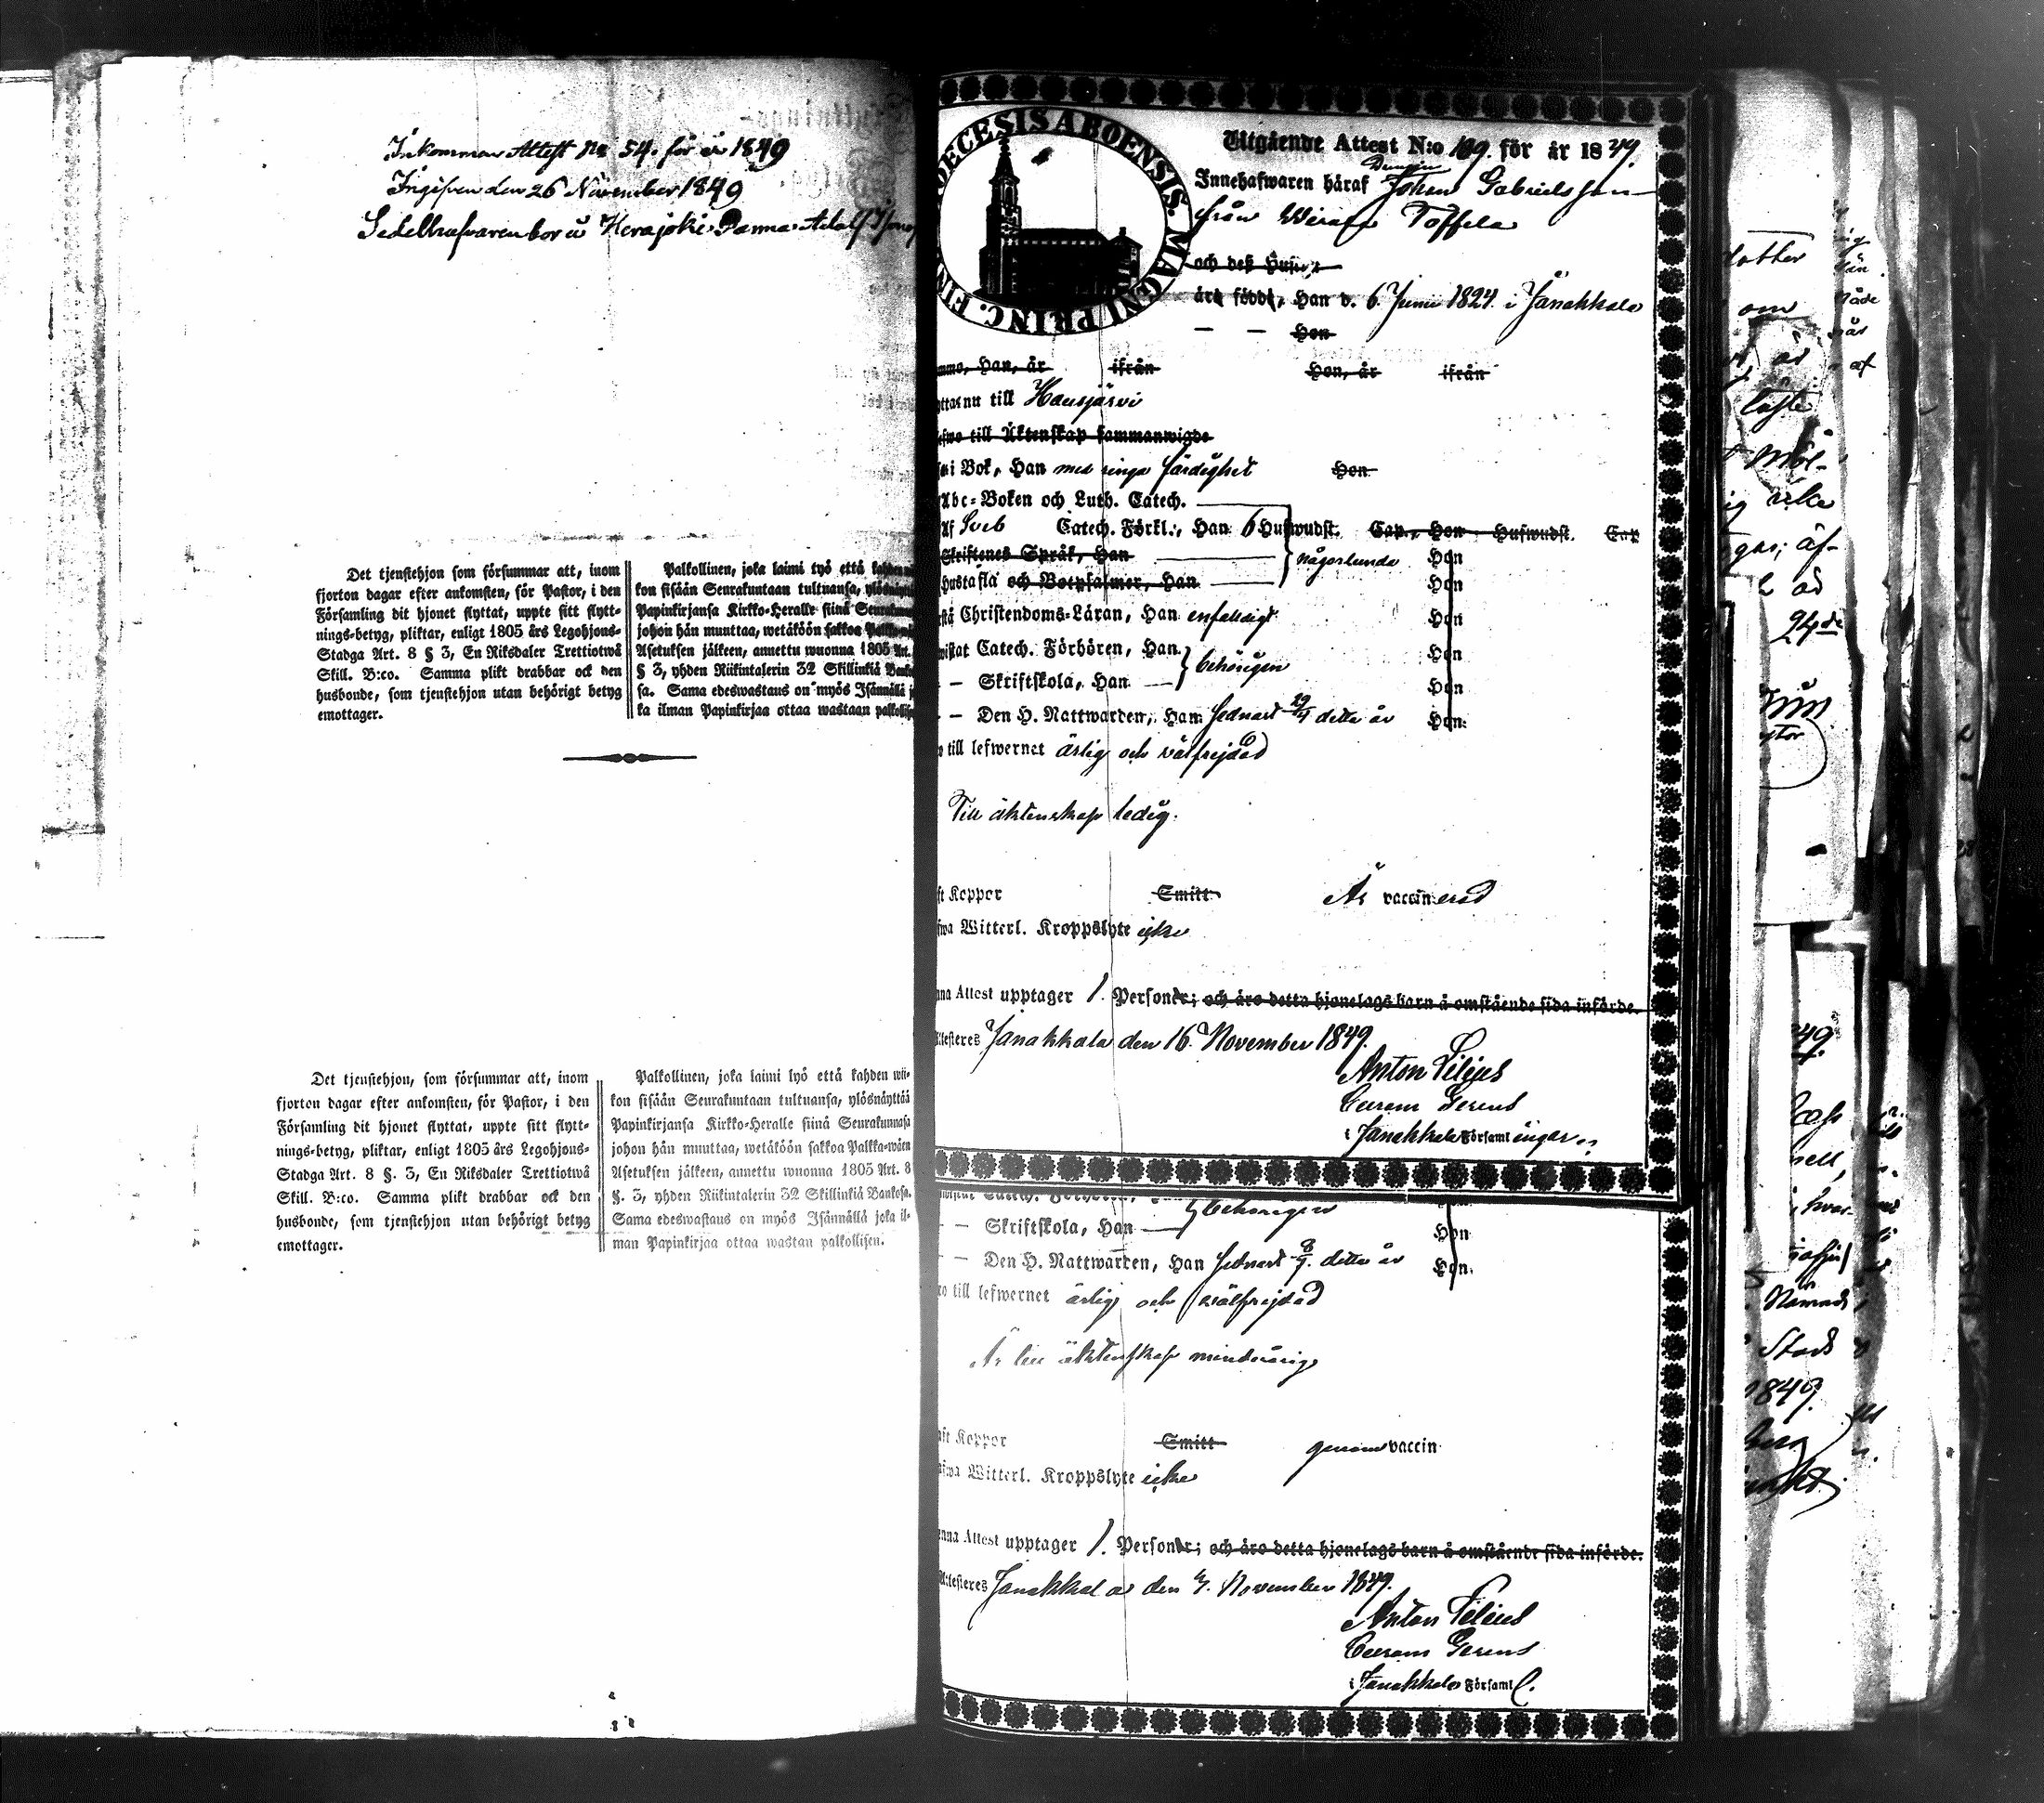 Inkommen Attest No 54. för år 1849
Ingifven den 26 November 1849
Sedelhafvaren bor i Herajoki Panna Adolf
Det tjenstehjon som försummar att, inom
fjorton dagar efter ankomsten, för Pastor, i den
Församling dit hjonet flyttat, uppte sitt flytt-
nings-betyg, pliktar, enligt 1805 års Legohjons-
Stadga Art. 8 § 3, En Riksdaler Trettiotwå
Skill. B:co. Samma plikt drabbar ock den
husbonde, som tjenstehjon utan behörigt betyg
emottager.
Palkollinen, joka laimi lyö että kahden
kon sisään Seurakuntaan tultuansa, ylösnäyttää
Papinkirjansa Kirkko-Heralle siinä Seurakunnasa
johon hän muuttaa, wetäköön sakkoa
Asetuksen jälkeen, annettu wuonna 1805 Art.
§ 3, yhden Riikintalerin 32 Skillinkiä Banko
sa. Sama edeswastaus on myös Isännällä
ka ilman Papinkirjaa ottaa wastaan palkollisen
Det tjenstehjon, som försummar att, inom
fjorton dagar efter ankomsten, för Pastor, i den
Församling dit hjonet flyttat, uppte sitt flytt-
nings-betyg, pliktar, enligt 1805 års Legohjons-
Stadga Art. 8 §. 3, En Riksdaler Trettiotwå
Skill. B:co. Samma plikt drabbar ock den
husbonde, som tjenstehjon utan behörigt betyg
emottager.
Palkollinen, joka laimi lyö että kahden wii-
kon sisään Seurakuntaan tultuansa, ylösnäyttää
Papinkirjansa Kirkko-Heralle siinä Seurakunnasa
johon hän muuttaa, wetäköön sakkoa Palkka-wäen
Asetuksen jälkeen, annettu wuonna 1805 Art. 8
§. 3, yhden Riikintalerin 32 Skillinkiä Bankosa.
Sama edeswastaus on myös Isännällä joka il-
man Papinkirjaa ottaa wastan palkollisen.
DECESIS ABOENSIS. MAGNI PRINC. FIN
Utgående Attest N:o 109. för år 1849.
Innehafwaren häraf Drengen Johan Gabrielsson
från Wirala Toffela
och deß Hustru
är född, Han d. 6 Junii 1824. i Janakkala
Hon
Han, år ifrån Hon, år ifrån
nu till Hausjärvi
till Äktenskap sammanwigde
i Bok, Han med ringa färdighet Hon
Abc-Boken och Luth. Catech.
Af Sveb Catech. Förkl., Han 6 Hufwudst. Cap., Hon Hufwudst. Cap
Skriftenes Språk, Han någorlunda Hon
Hustafla och Botpsalmer, Han Hon
Christendoms-Läran, Han enfaldigt Hon
Catech. Förhören, Han behörigen Hon
— Skriftskola, Han Hon
— Den H. Nattwarden, Han sednast 29/4 detta år Hon
till lefwernet ärlig och välfrejdad
Till äktenskap ledig.
Koppor Smitt Är vaccinerad
Witterl. Kroppslyte icke
Attest upptager 1. Person; och äro detta hjonelags barn å omstående sida införde.
Janakkala den 16. November 1849.
Anton Lilius
Curam Gerens
i Janakkala Församlingar
behörigen
— Skriftskola, Han Hon
— Den H. Nattwarden, Han sednast detta år Hon
till lefwernet ärlig och välfrejdad
Är till äktenskap minderårig
Koppor Smitt genom vaccin
Witterl. Kroppslyte icke
Attest upptager 1. Person; och äro detta hjonelags barn å omstående sida införde.
Janakkala den November 1849.
Anton Lilius
Curam Gerens
i Janakkala Församl.